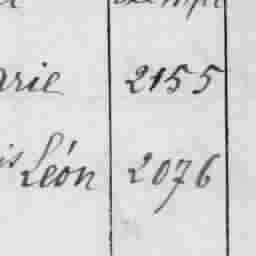 arie 2155
is Léon 2076